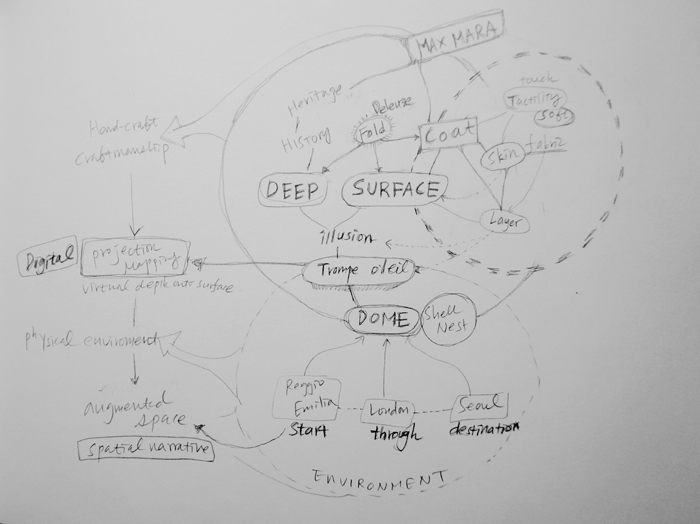 MAX MARA
Heritage
History
Deleuze
Fold
Coat
touch
Tactility
Soft
Skin
fabric
Layer
Hand-craft
Craftmanship
DEEP
SURFACE
illusion
Trompe oleil
DOME
Shell
Nest
Digital
projection
mapping
virtual depth onto surface
physical enviroment
augmented
space
spatial narrative
Reggio
Emilia
Start
London
through
Seoul
destination
ENVIRONMENT